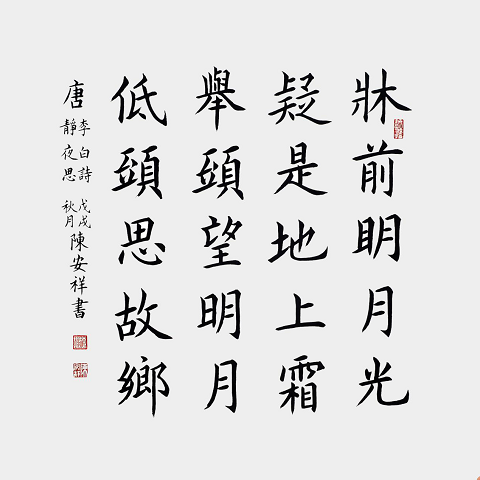 牀前明月光
疑是地上霜
舉頭望明月
低頭思故鄉
唐李白詩靜夜思戊戌秋月陳安祥書